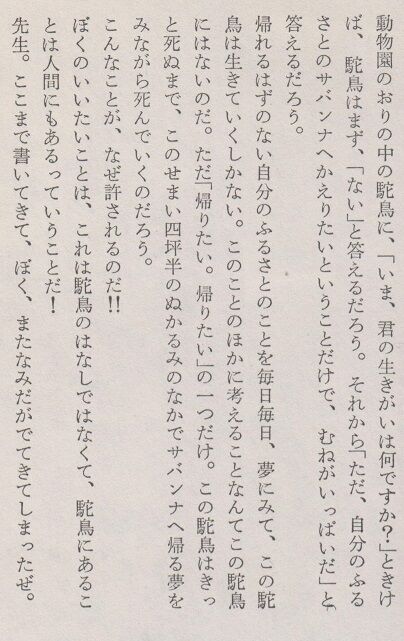 動物園のおりの中の駝鳥に、「いま、君の生きがいは何ですか？」ときけ
ば、駝鳥はまず、「ない」と答えるだろう。それから「ただ、自分のふる
さとのサバンナへかえりたいということだけで、むねがいっぱいだ」と
答えるだろう。
帰れるはずのない自分のふるさとのことを毎日毎日、夢にみて、この駝
鳥は生きていくしかない。このことのほかに考えることなんてこの駝鳥
にはないのだ。ただ「帰りたい。帰りたい」の一つだけ。この駝鳥はきっ
と死ぬまで、このせまい四坪半のぬかるみのなかでサバンナへ帰る夢を
みながら死んでいくのだろう。
こんなことが、なぜ許されるのだ!!
ぼくのいいたいことは、これは駝鳥のはなしではなくて、駝鳥にあるこ
とは人間にもあるっていうことだ！
先生。ここまで書いてきて、ぼく、またなみだがでてきてしまったぜ。